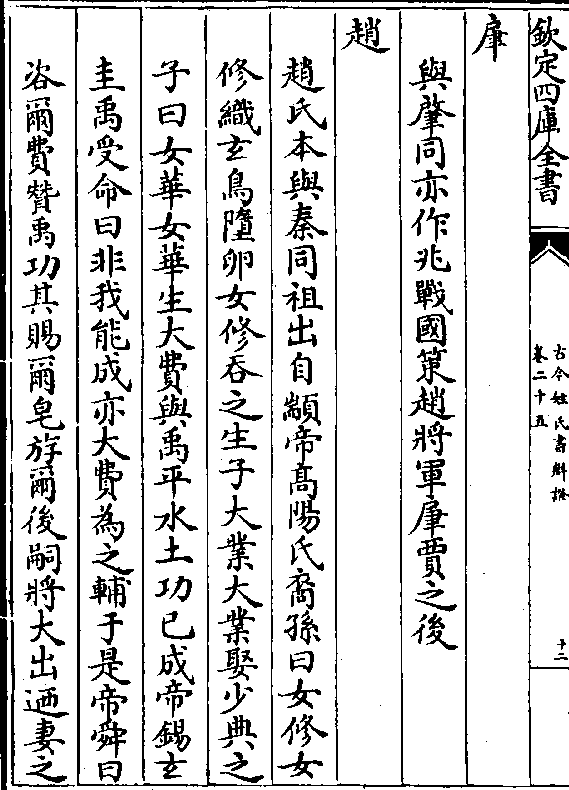 欽定四庫全書
古今姓氏書辯證
卷二十五
十二
肁
與肇同亦作兆戰國策趙將軍肁賈之後
趙
趙氏本與秦同祖出自顓帝高陽氏裔孫曰女修女
修織玄鳥墮卵女修吞之生子大業大業娶少典之
子曰女華女華生大費與禹平水土功已成帝錫玄
圭禹受命曰非我能成亦大費為之輔于是帝舜曰
咨爾費贊禹功其賜爾皂斿爾後嗣將大出迺妻之